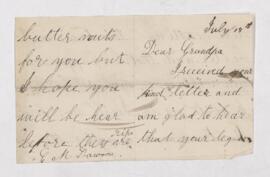 July 18th
Dear Grandpa
I received your
kind letter and
am glad to hear
that your leg
butter nuts
for you but
I hope you
will be hear
before they are
ripe